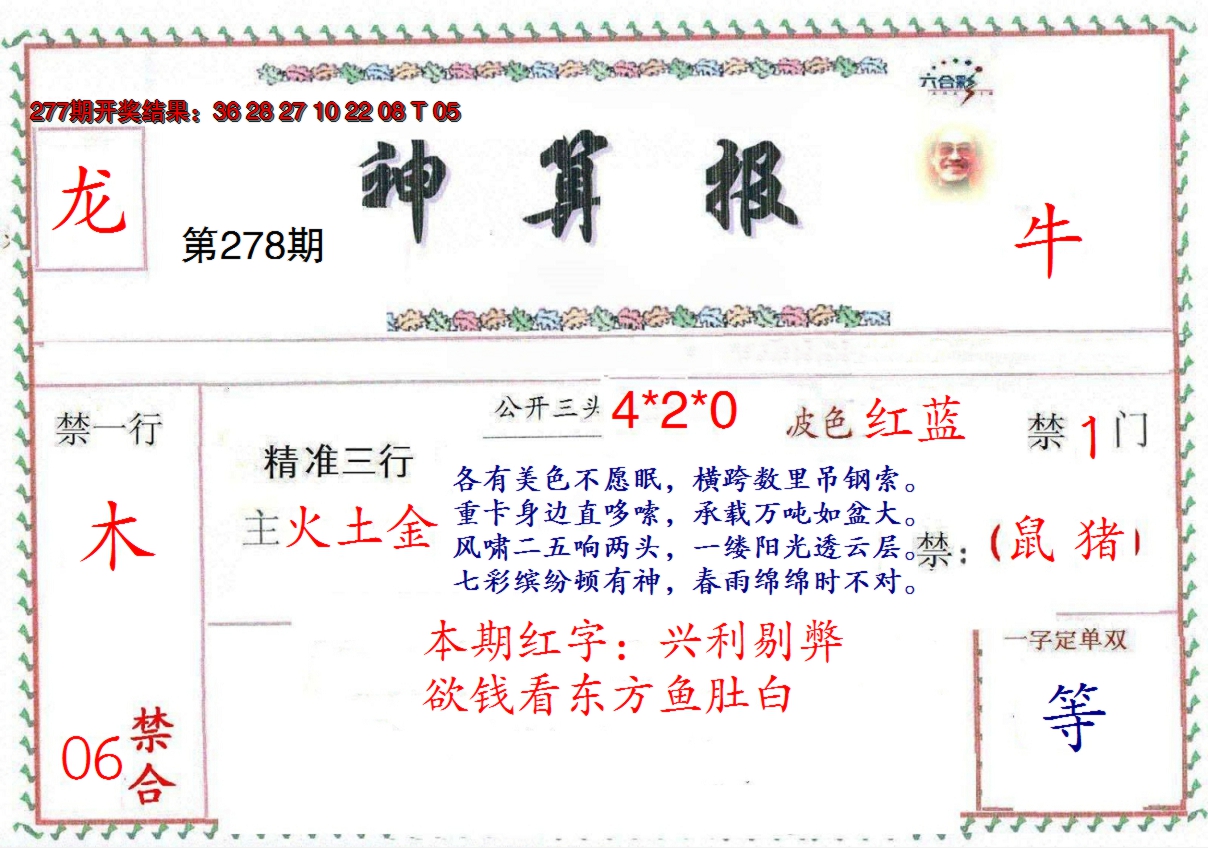 六合彩
277期开奖结果：36 28 27 10 22 08 T 05
龙
神算报
第278期
牛
禁一行
木
06
禁合
公开三头 4*2*0
波色 红蓝
禁1门
精准三行
主火土金
各有美色不愿眠，横跨数里吊钢索。
重卡身边直哆嗦，承载万吨如盆大。
风啸二五响两头，一缕阳光透云层。
七彩缤纷顿有神，春雨绵绵时不对。
禁：（鼠 猪）
本期红字：兴利剔弊
欲钱看东方鱼肚白
一字定单双
等